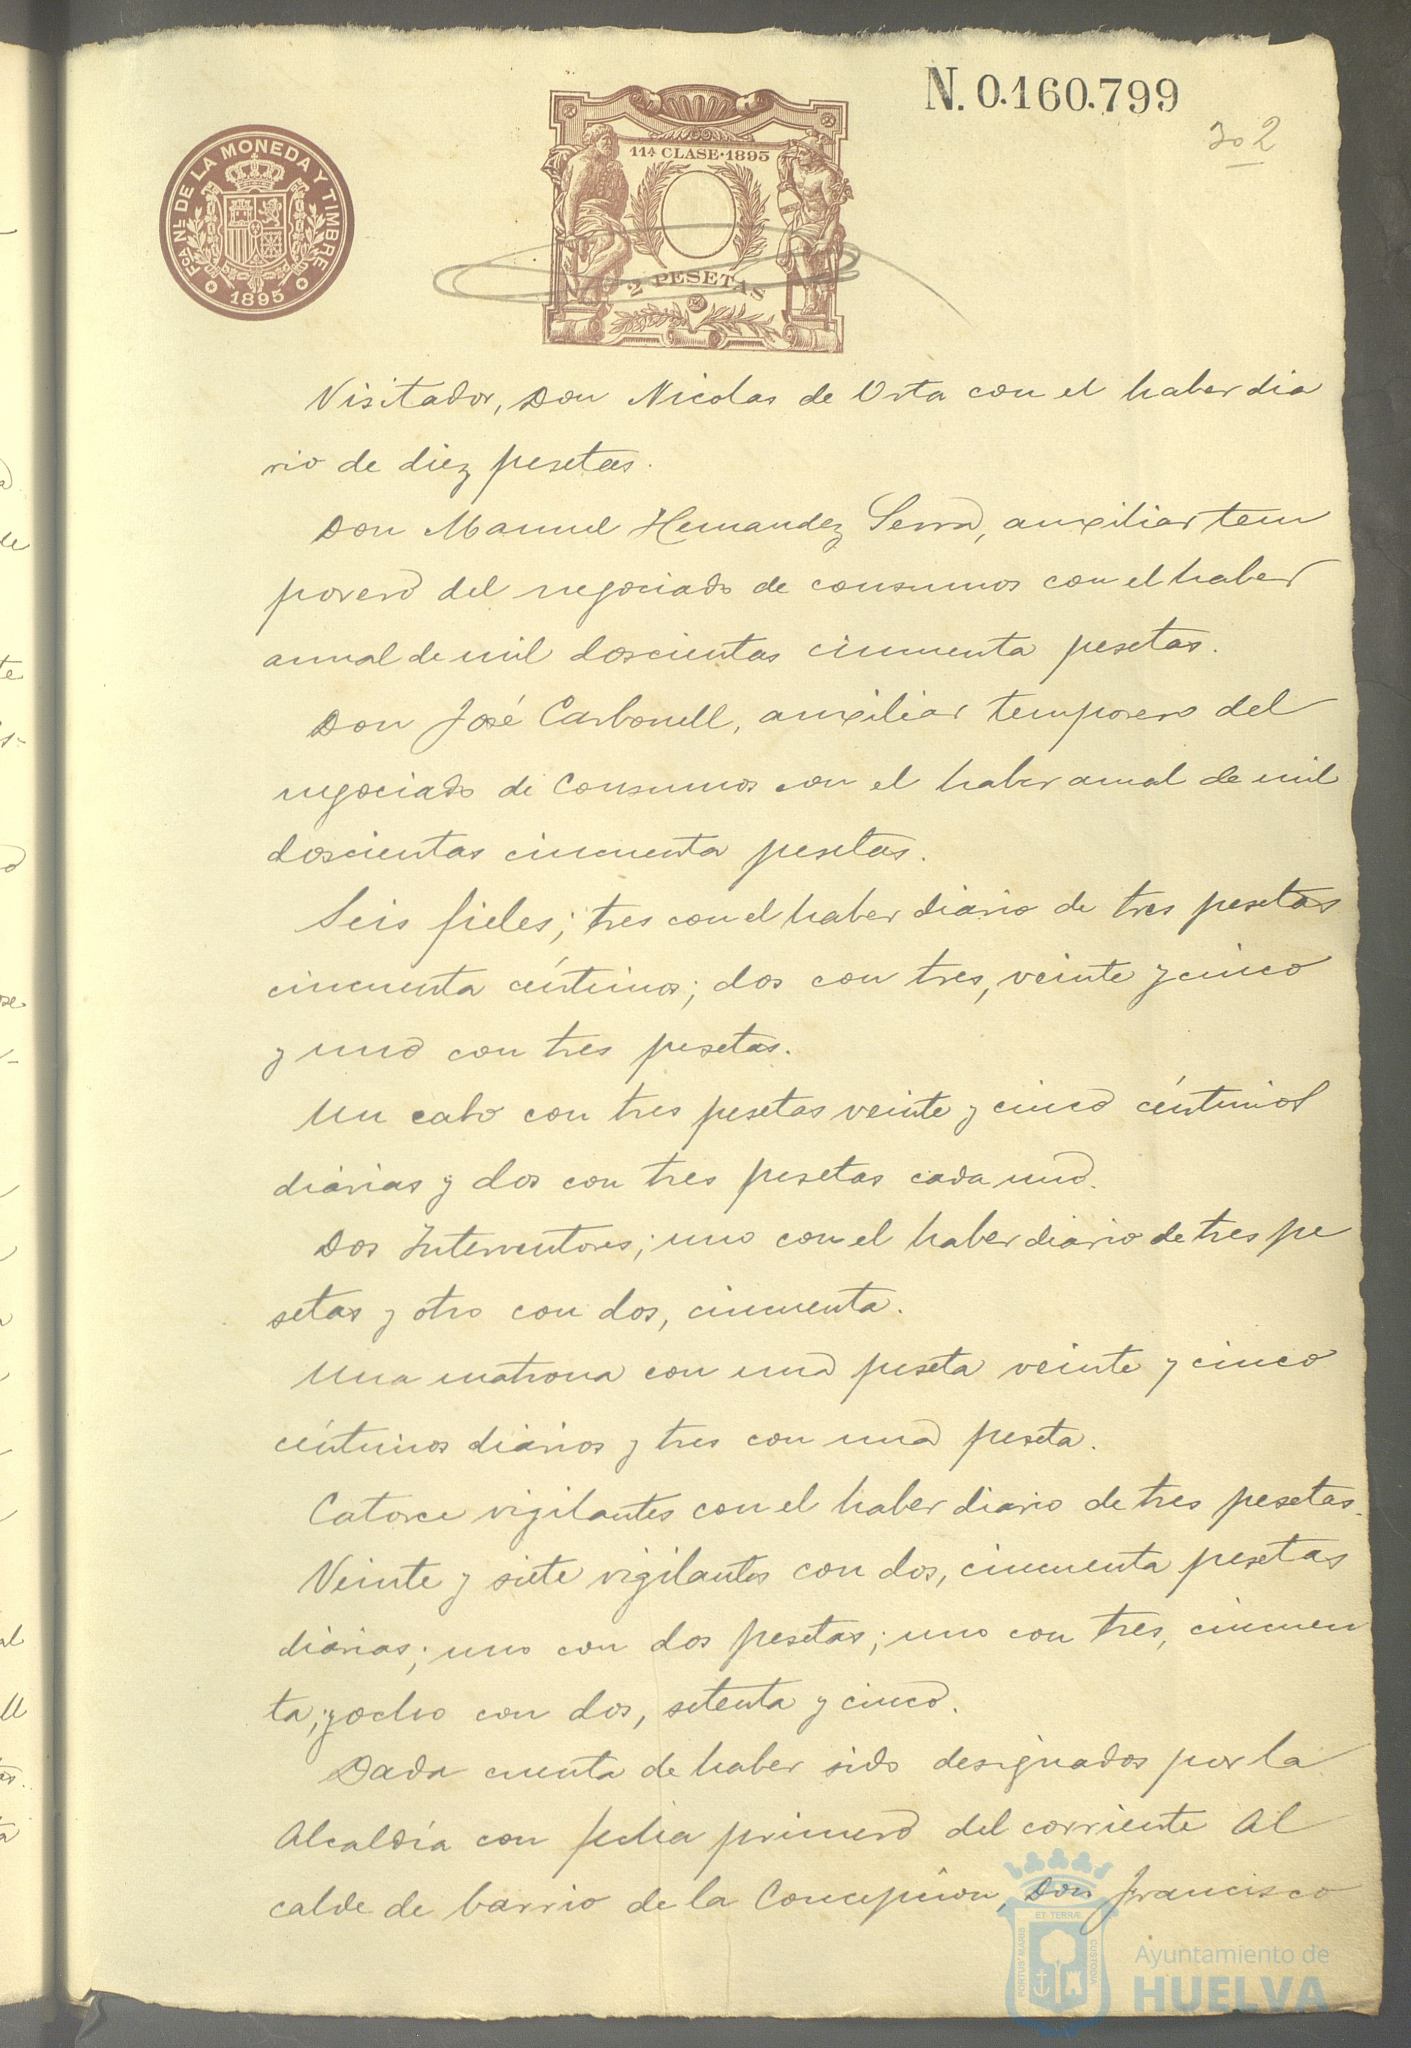 N. 0.160.799
302
FCA NL DE LA MONEDA Y TIMBRE
1895
11ª CLASE·1895
2 PESETAS
Visitador, Don Nicolas de Orta con el haber dia
rio de diez pesetas.
Don Manuel Hernandez Serra, auxiliar tem
porero del negociado de consumos con el haber
anual de mil doscientas cincuenta pesetas.
Don José Carbonell, auxiliar temporero del
negociado de Consumos con el haber anual de mil
doscientas cincuenta pesetas.
Seis fieles; tres con el haber diario de tres pesetas
cincuenta céntimos; dos con tres, veinte y cinco
y uno con tres pesetas.
Un cabo con tres pesetas veinte y cinco céntimos
diarias y dos con tres pesetas cada uno.
Dos Interventores; uno con el haber diario de tres pe
setas y otro con dos, cincuenta.
Una matrona con una peseta veinte y cinco
céntimos diarios y tres con una peseta.
Catorce vigilantes con el haber diario de tres pesetas.
Veinte y siete vigilantes con dos, cincuenta pesetas
diarias; uno con dos pesetas; uno con tres, cincuen
ta; y ocho con dos, setenta y cinco.
Dada cuenta de haber sido designados por la
Alcaldía con fecha primero del corriente Al
calde de barrio de la Concepcion, Don Francisco
PORTUS MARIS ET TERRÆ CUSTODIA
Ayuntamiento de
HUELVA